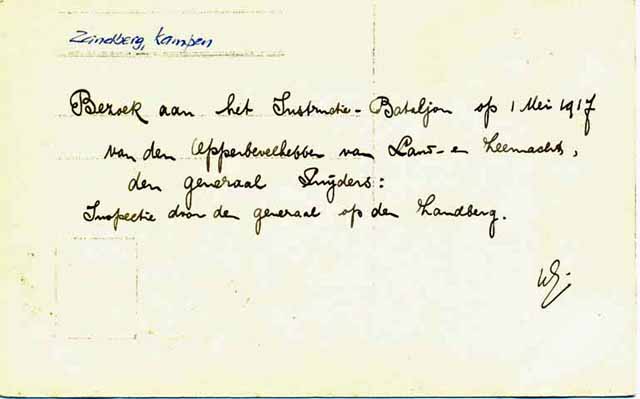 Zandberg, Kampen
Bezoek aan het Instructie-Bataljon op 1 Mei 1917
van den Opperbevelhebber van Land- en Zeemacht,
den generaal Snijders:
Inspectie door den generaal op den Zandberg.